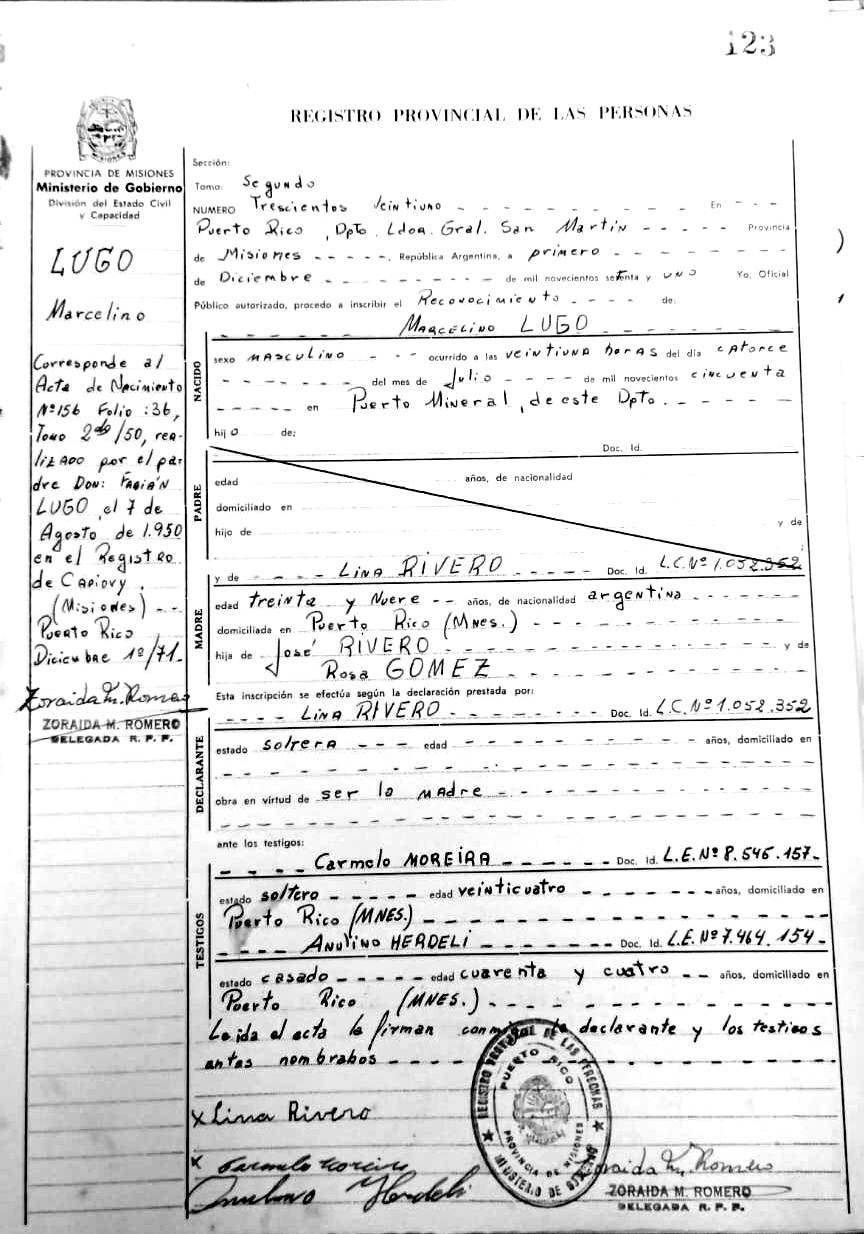 123
REGISTRO PROVINCIAL DE LAS PERSONAS
PROVINCIA DE MISIONES
Ministerio de Gobierno
División del Estado Civil
y Capacidad
LUGO
Marcelino
Corresponde al
Acta de Nacimiento
Nº156 Folio :36,
Tomo 2do/50, rea-
lizado por el pa-
dre Don: Fabián
LUGO, el 7 de
Agosto de 1.950
en el Registro
de Capiovy.
(Misiones) - -
Puerto Rico,
Diciembre 1º/71.
Zoraida M. Romero
ZORAIDA M. ROMERO
DELEGADA R. P. P.
Sección:
Tomo: Segundo
NUMERO Trescientos Veintiuno - - - - - - - - - - - En - - -
Puerto Rico, Dpto. Ldor. Gral. San Martín - - - - - Provincia
de Misiones - - - - -, República Argentina, a primero - - - - - - - -
de Diciembre - - - - - - - - - - de mil novecientos setenta y uno Yo, Oficial
Público autorizado, procedo a inscribir el Reconocimiento - - - - de:
- - - - - - - Marcelino LUGO - - - - - - - -
NACIDO
sexo masculino - - - ocurrido a las veintiuna horas del día catorce
- - - - - - - del mes de Julio - - - - - de mil novecientos cincuenta
- - - - - en Puerto Mineral, de este Dpto. - - - - -
hijo de:
PADRE
Doc. Id.
edad años, de nacionalidad
domiciliado en
hijo de y de
MADRE
y de - - - - Lina RIVERO - - - - - Doc. Id. L.C.Nº1.052.352
edad treinta y nueve - - años, de nacionalidad argentina - - - - - -
domiciliada en Puerto Rico (Mnes.) - - - - - - - - - - - -
hija de José RIVERO - - - - - - - - - - - - y de
Rosa GOMEZ - - - - - - - - - - - - -
Esta inscripción se efectúa según la declaración prestada por:
DECLARANTE
- - - - Lina RIVERO - - - - - - - Doc. Id. L.C.Nº1.052.352
estado soltera - - - edad - - - - - - - - - - años, domiciliado en
- - - - - - - - - - - - - - - - - - - - - -
obra en virtud de ser la madre - - - - - - - - - - - - -
- - - - - - - - - - - - - - - - - - - - - -
ante los testigos:
TESTIGOS
- - - - Carmelo MOREIRA - - - - - - Doc. Id. L.E.Nº8.546.157-
estado soltero - - - - - edad veinticuatro - - - - - - - años, domiciliado en
Puerto Rico (MNES.) - - - - - - - - - - - - - - - - -
- - - - Anulino HERDELI - - - - - - Doc. Id. L.E.Nº7.464.154-
estado casado - - - - - edad cuarenta y cuatro - - años, domiciliado en
Puerto Rico (MNES.) - - - - - - - - - - - - - -
Leida el acta la firman declarante y los testigos
antes nombrabos - - - - - - - - - - - - - - - -
x Lina Rivero
x
Herdeli
REGISTRO PROVINCIAL DE LAS PERSONAS
PUERTO RICO
PROVINCIA DE MISIONES
MINISTERIO DE GOBIERNO
Zoraida M. Romero
ZORAIDA M. ROMERO
DELEGADA R. P. P.